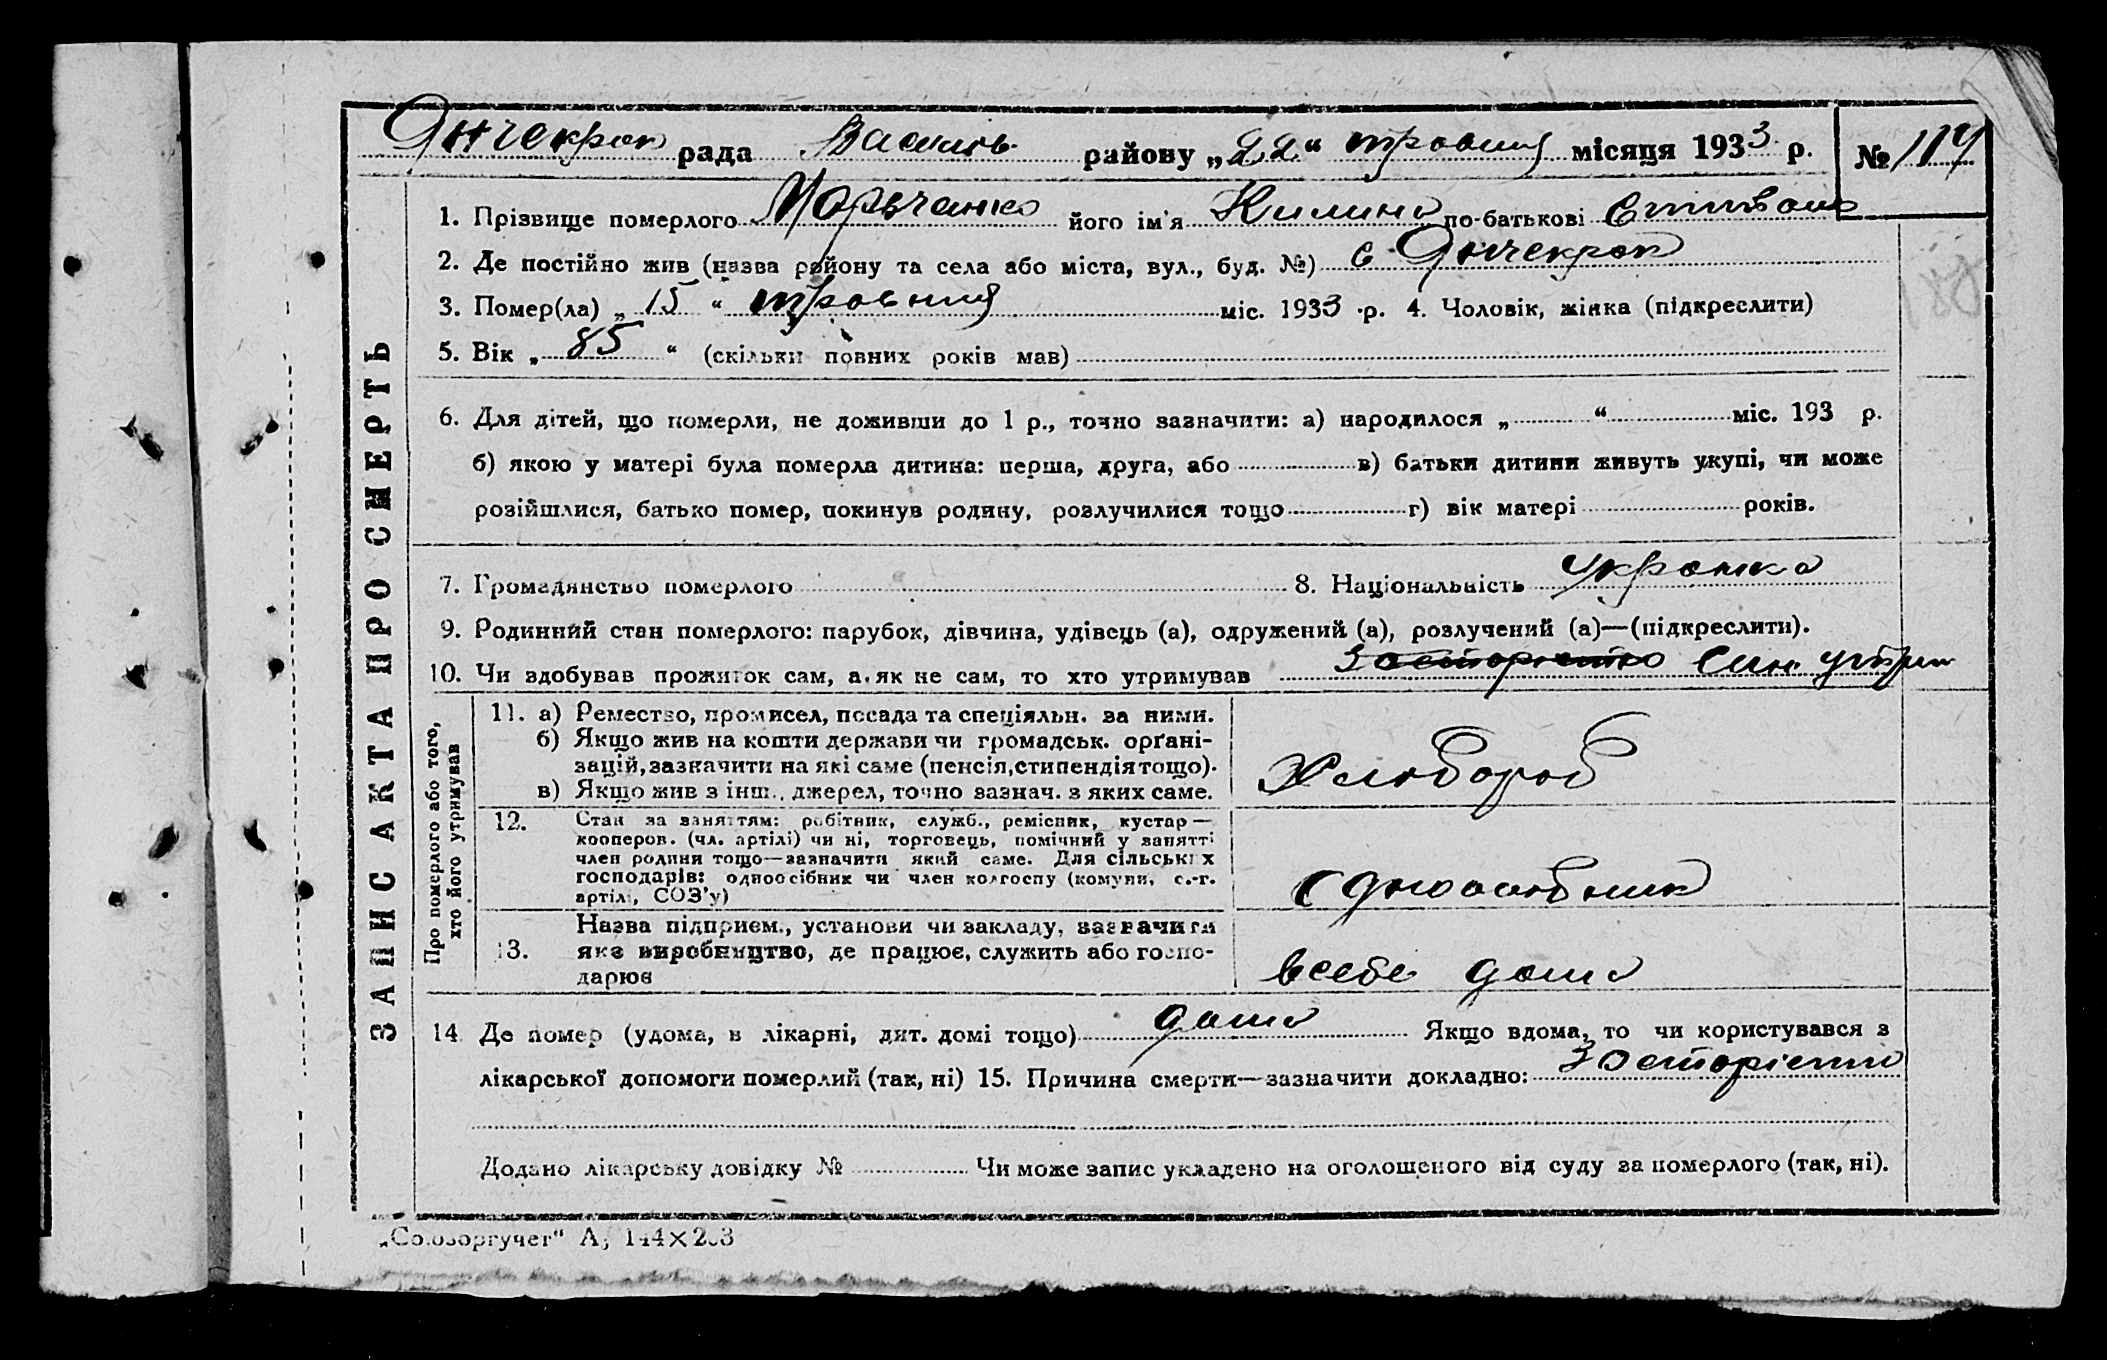 Янчекрак рада Василів. району „22“ травня місяця 1933 р. № 114
1. Прізвище померлого Марченко його ім'я Килина по-батькові Степано
2. Де постійно жив (назва району та села або міста, вул., буд. №) с Янчекрак
3. Помер(ла) „ 15 “ травня міс. 1933 р. 4. Чоловік, жінка (підкреслити)
5. Вік „ 85 “ (скільки повних років мав)
6. Для дітей, що померли, не доживши до 1 р., точно зазначити: а) народилося „ “ міс. 193 р.
б) якою у матері була померла дитина: перша, друга, або в) батьки дитини живуть укупі, чи може
розійшлися, батько помер, покинув родину, розлучилися тощо г) вік матері років.
7. Громадянство померлого 8. Національність Украинка
9. Родинний стан померлого: парубок, дівчина, удівець (а), одружений (а), розлучений (а)—(підкреслити).
10. Чи здобував прожиток сам, а як не сам, то хто утримував Син утрим
ЗАПИС АКТА ПРО СМЕРТЬ
Про померлого або того, хто його утримував
11. а) Ремество, промисел, посада та спеціяльн. за ними.
б) Якщо жив на кошти держави чи громадськ. орґані-
зацій, зазначити на які саме (пенсія, стипендія тощо).
в) Якщо жив з інш., джерел, точно зазнач. з яких саме.
Хлібороб
12. Стан за заняттям: робітник, служб., ремісник, кустар—
кооперов. (чл. артілі) чи ні, торговець, помічний у занятті
член родини тощо—зазначити який саме. Для сільських
господарів: одноосібник чи член колгоспу (комуни, с.-г.
артілі, СОЗ'у)
Одноосібник
13. Назва підприєм., установи чи закладу, зазначити
яке виробництво, де працює, служить або госпо-
дарює
всебе дома
14. Де помер (удома, в лікарні, дит. домі тощо) дома Якщо вдома, то чи користувався з
лікарської допомоги померлий (так, ні) 15. Причина смерти—зазначити докладно: Зосторіст
Додано лікарську довідку № Чи може запис укладено на оголошеного від суду за померлого (так, ні).
„Союзоргучет" А, 144×203